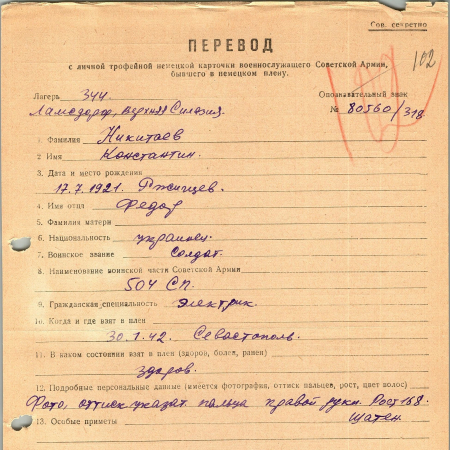 Сов. секретно
102
ПЕРЕВОД
с личной трофейной немецкой карточки военнослужащего Советской Армии,
бывшего в немецком плену.
Лагерь 344 Опознавательный знак
Ламсдорф, Верхняя Силезия. № 80560/318
1 Фамилия Никитаев
2 Имя Константин.
3. Дата и место рождения
17.7.1921.
4. Имя отца Федор
5. Фамилия матери
6. Национальность украинец
7. Воинское звание Солдат.
8. Наименование воинской части Советской Армии
504 СП.
9. Гражданская специальность Электрик.
10. Когда и где взят в плен
30.1.42. Севастополь.
11. В каком состоянии взят в плен (здоров, болен, ранен)
здоров.
12. Подробные персональные данные (имеется фотография, оттиск пальцев, рост, цвет волос)
Фото, оттиск указат. пальца правой руки. Рост 168.
13. Особые приметы Шатен.